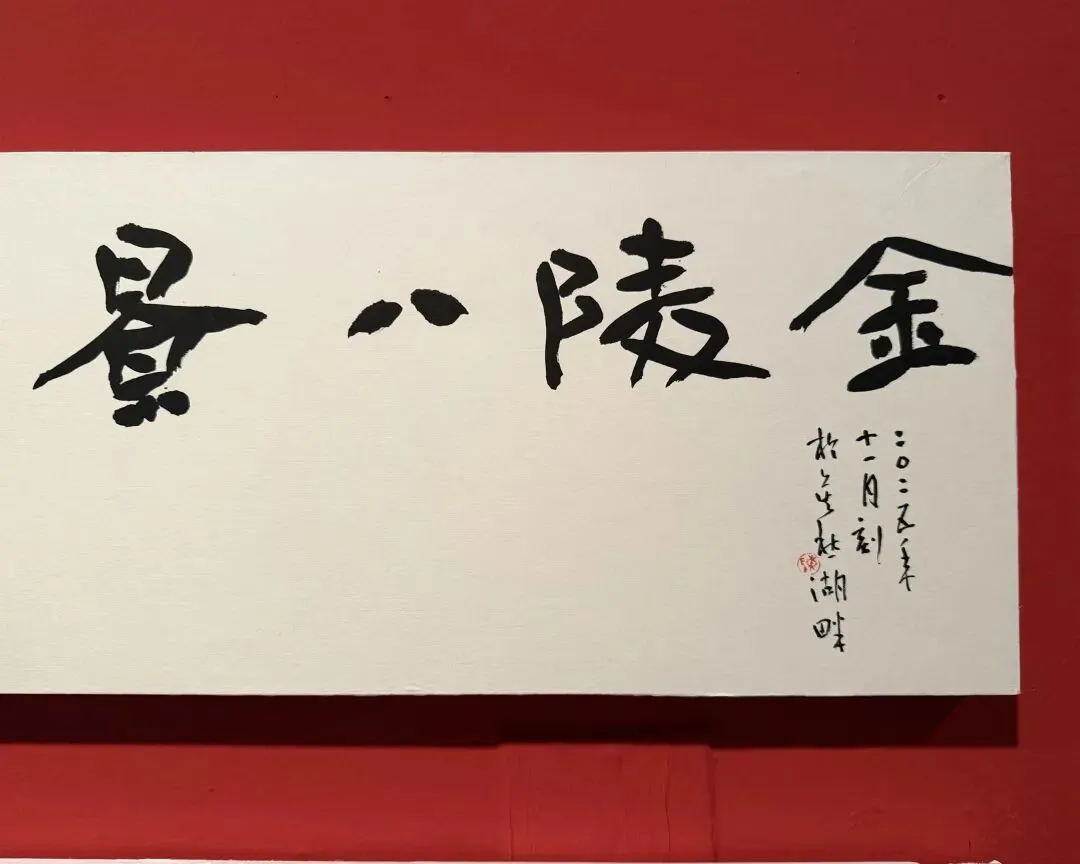 金陵八景
二〇二五年
十一月刻
於
湖畔